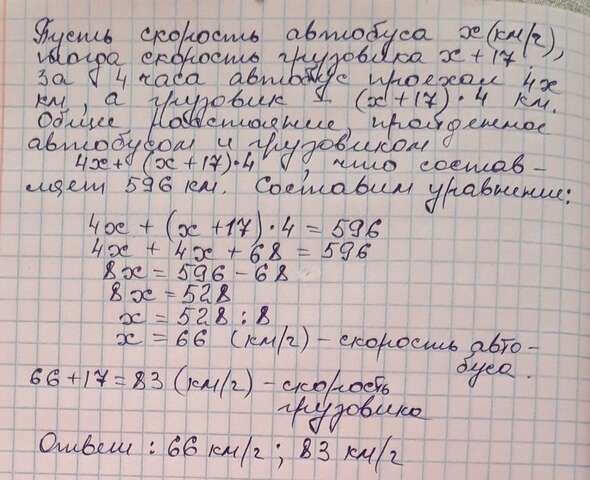 Пусть скорость автобуса х(км/г),
тогда скорость грузовика х + 17
За 4 часа автобус проехал 4х
км, а грузовик (х+17)·4 км.
Общее расстояние, пройденное
автобусом и грузовиком
4х+(х+17)·4, что состав-
ляет 596 км. Составим уравнение:
4х + (х+17)·4 = 596
4х + 4х + 68 = 596
8х = 596 - 68
8х = 528
х = 528 : 8
х = 66 (км/г) - скорость авто-
буса.
66+17=83 (км/г) - скорость
грузовика
Ответ : 66 км/г ; 83 км/г